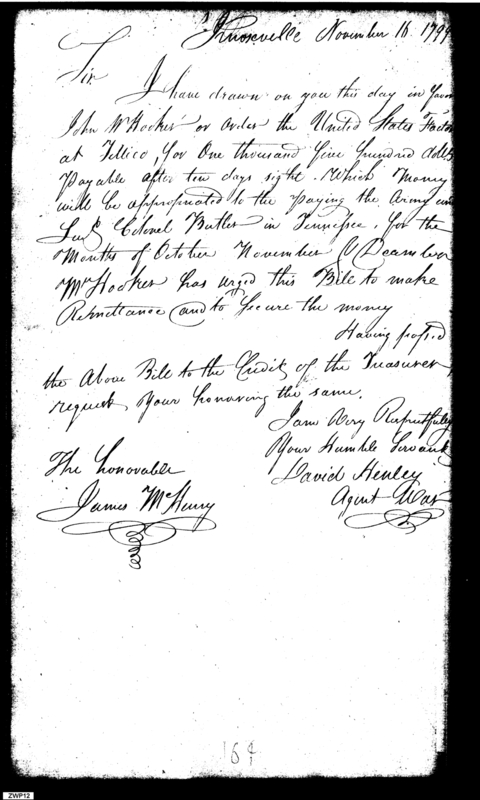 Knoxville November 16 1799
Sir
I have drawn on you this day in favor
John W Hooker or order the United States Factor
at Tellico, for One thousand five hundred dolls
Payable after ten days sight. Which Money
will be appropriated to the paying the Army under
Colonel Butler in Tennessee, for the
Months of October November & December
Mr Hooker has urged this Bill to make
Remittance and to secure the money
Having passed
the Above Bill to the Credit of the Treasurer,
request your honoring the same.
I am Very Respectfully
Your Humble Servant
David Henley
Agent War
The honorable
James McHenry
169
ZWP12